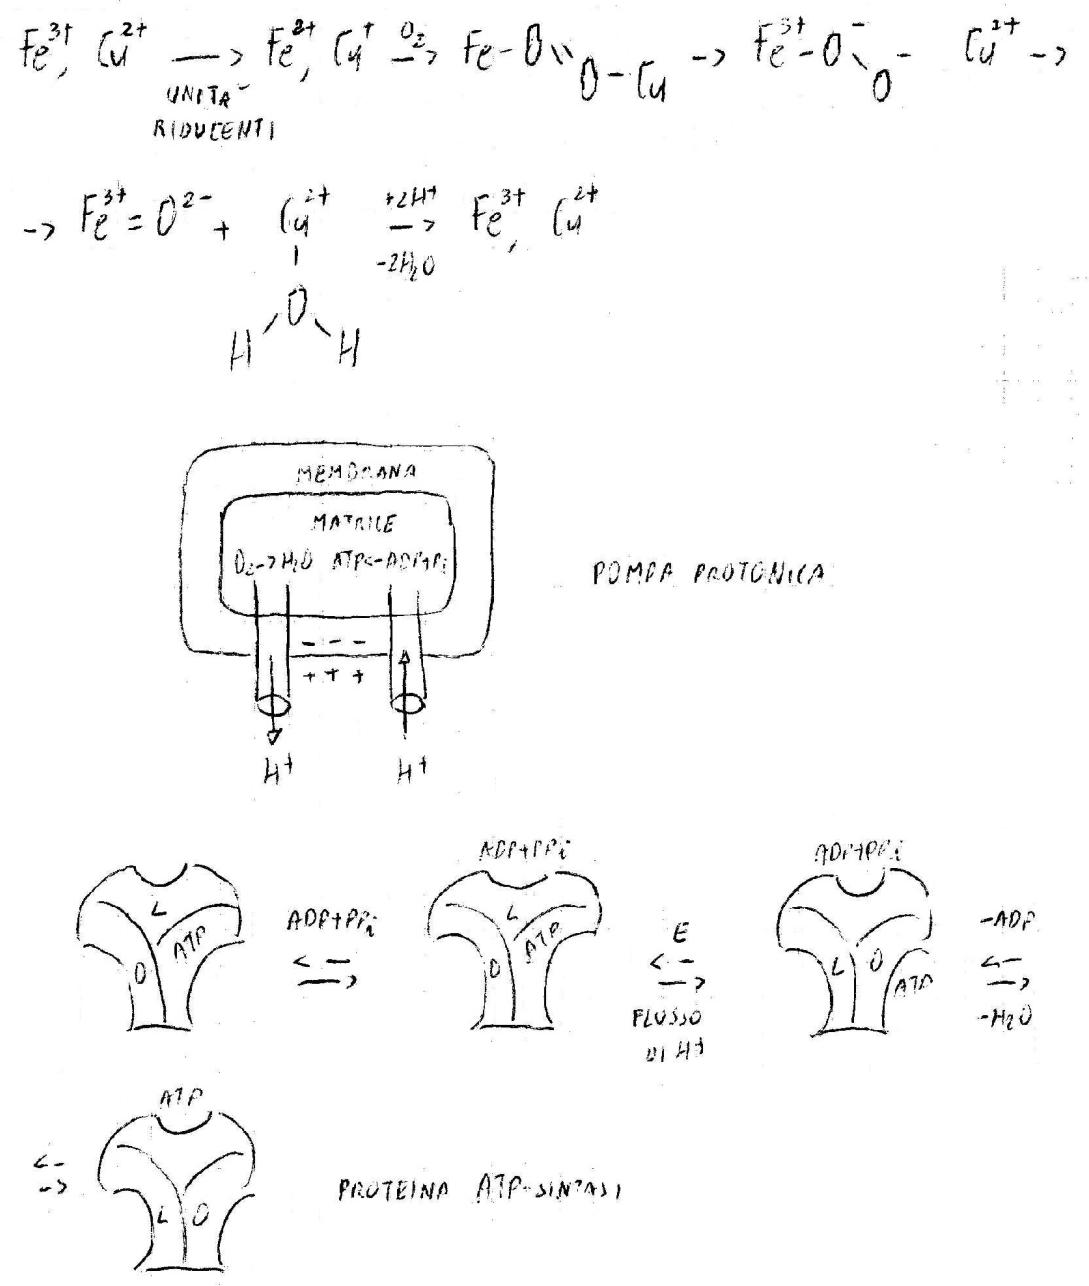 Fe³⁺, Cu²⁺ → Fe²⁺, Cu⁺ O₂ → Fe-O=O-Cu → Fe³⁺-O⁻-O⁻ Cu²⁺ →
UNITA'
RIDUCENTI
→ Fe³⁺=O²⁻ + Cu²⁺ +2H⁺ → Fe³⁺, Cu²⁺
-2H₂O
O
H H
MEMBRANA
MATRICE
O₂->H₂O ATP<-ADP+Pi
POMPA PROTONICA
- - -
+ + +
H⁺ H⁺
ADP+PPi ADP+PPi
L ATP O
ADP+PPi
L ATP O
E
FLUSSO
DI H⁺
L O ATP
-ADP
-H₂O
ATP
L O
PROTEINA ATP-SINTASI